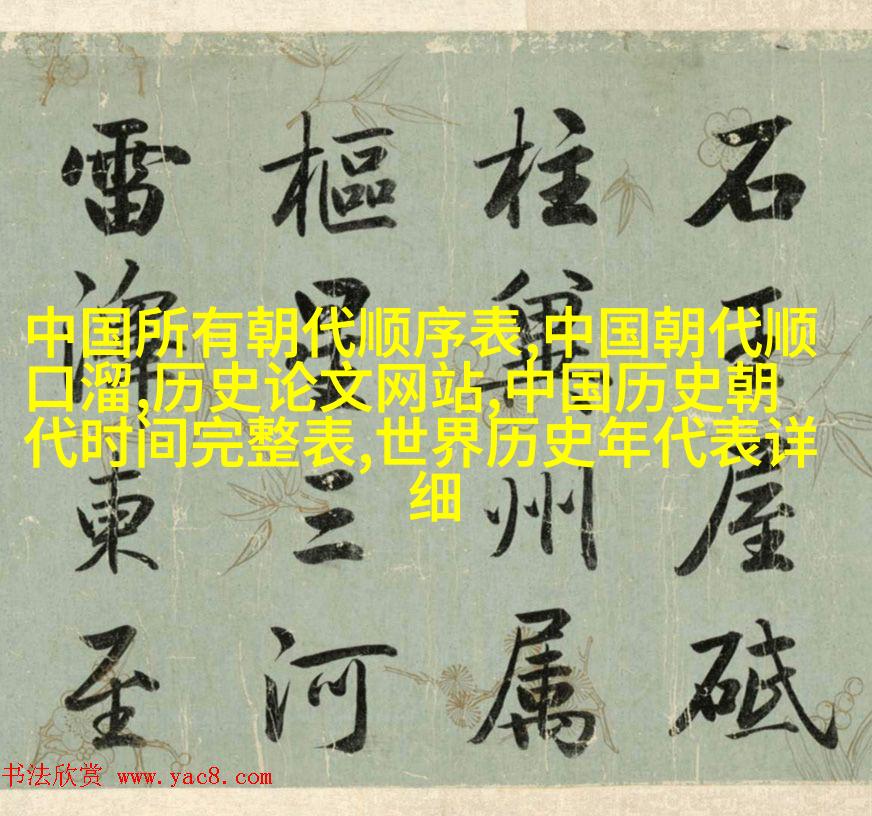 石王屋砥
柱冀州属
樞星三河
雷東至
中国所有朝代顺序表,中国朝代顺
口溜,历史论文网站,中国历史朝
代时间完整表,世界历史年代表详
细
书法欣赏 www.yac8.com